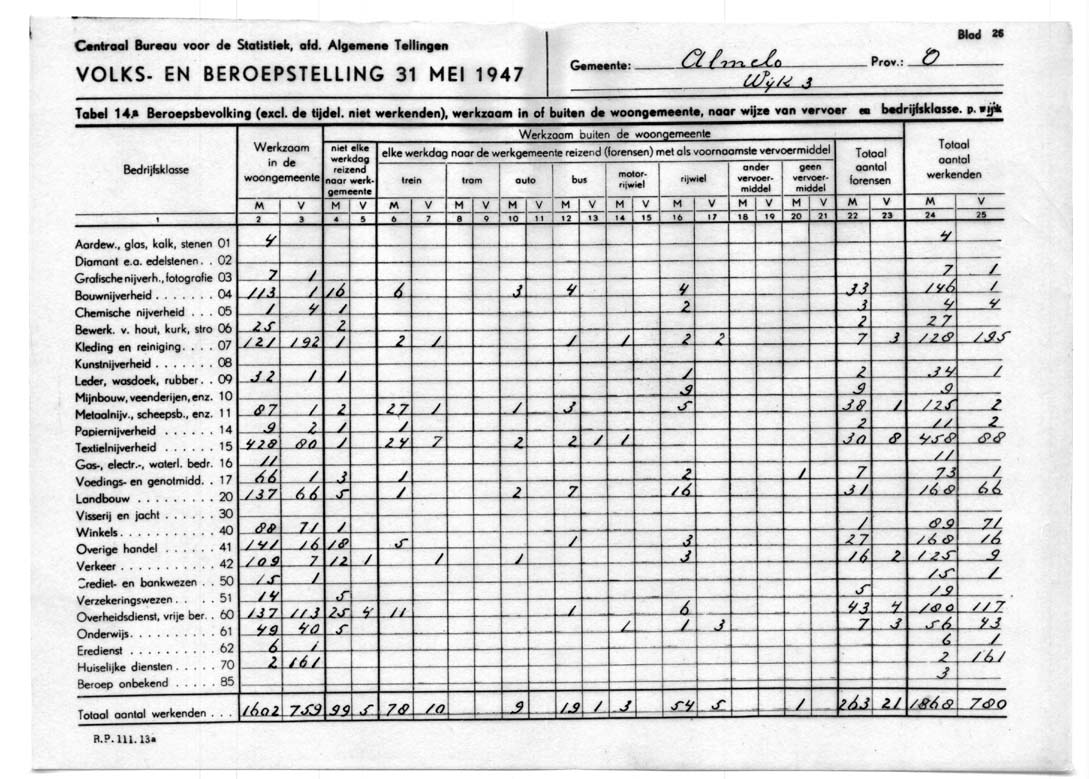 Centraal Bureau voor de Statistiek, afd. Algemene Tellingen
VOLKS- EN BEROEPSTELLING 31 MEI 1947
Gemeente: Almelo Prov.: O
Wijk 3
Blad 26
Tabel 14.a Beroepsbevolking (excl. de tijdel. niet werkenden), werkzaam in of buiten de woongemeente, naar wijze van vervoer en bedrijfsklasse. p. wijk
Bedrijfsklasse
Werkzaam in de woongemeente
Werkzaam buiten de woongemeente
niet elke werkdag reizend naar werkgemeente
elke werkdag naar de werkgemeente reizend (forensen) met als voornaamste vervoermiddel
trein tram auto bus motor-rijwiel rijwiel ander vervoer-middel geen vervoer-middel
Totaal aantal forensen
Totaal aantal werkenden
M V M V M V M V M V M V M V M V M V M V M V M V
1 2 3 4 5 6 7 8 9 10 11 12 13 14 15 16 17 18 19 20 21 22 23 24 25
Aardew., glas, kalk, stenen 01 4 4
Diamant e.a. edelstenen . . 02
Grafische nijverh., fotografie 03 7 1 7 1
Bouwnijverheid . . . . . . . 04 113 1 16 6 3 4 4 33 146 1
Chemische nijverheid . . . 05 1 4 1 2 3 4 4
Bewerk. v. hout, kurk, stro 06 25 2 2 27
Kleding en reiniging. . . . 07 121 192 1 2 1 1 1 2 2 7 3 128 195
Kunstnijverheid . . . . . . 08
Leder, wasdoek, rubber. . 09 32 1 1 1 2 34 1
Mijnbouw, veenderijen, enz. 10 9 9 9
Metaalnijv., scheepsb., enz. 11 87 1 2 27 1 1 3 5 38 1 125 2
Papiernijverheid . . . . . . 14 9 2 1 1 2 11 2
Textielnijverheid . . . . . . 15 428 80 1 24 7 2 2 1 1 30 8 458 88
Gas-, electr.-, waterl. bedr. 16 11 11
Voedings- en genotmidd. . 17 66 1 3 1 2 1 7 73 1
Landbouw . . . . . . . . . 20 137 66 5 1 2 7 16 31 168 66
Visserij en jacht . . . . . . 30
Winkels . . . . . . . . . . . 40 88 71 1 1 89 71
Overige handel . . . . . . 41 141 16 18 5 1 3 27 168 16
Verkeer . . . . . . . . . . . 42 109 7 12 1 1 1 3 16 2 125 9
Crediet- en bankwezen . . 50 15 1 15 1
Verzekeringswezen . . . . 51 14 5 5 19
Overheidsdienst, vrije ber. . 60 137 113 25 4 11 1 6 43 4 180 117
Onderwijs. . . . . . . . . . 61 49 40 5 1 1 3 7 3 56 43
Eredienst . . . . . . . . . . 62 6 1 6 1
Huiselijke diensten . . . . . 70 2 161 2 161
Beroep onbekend . . . . . 85 3
Totaal aantal werkenden . . . 1602 759 99 5 78 10 9 19 1 3 54 5 1 263 21 1868 780
R.P. 111. 13a